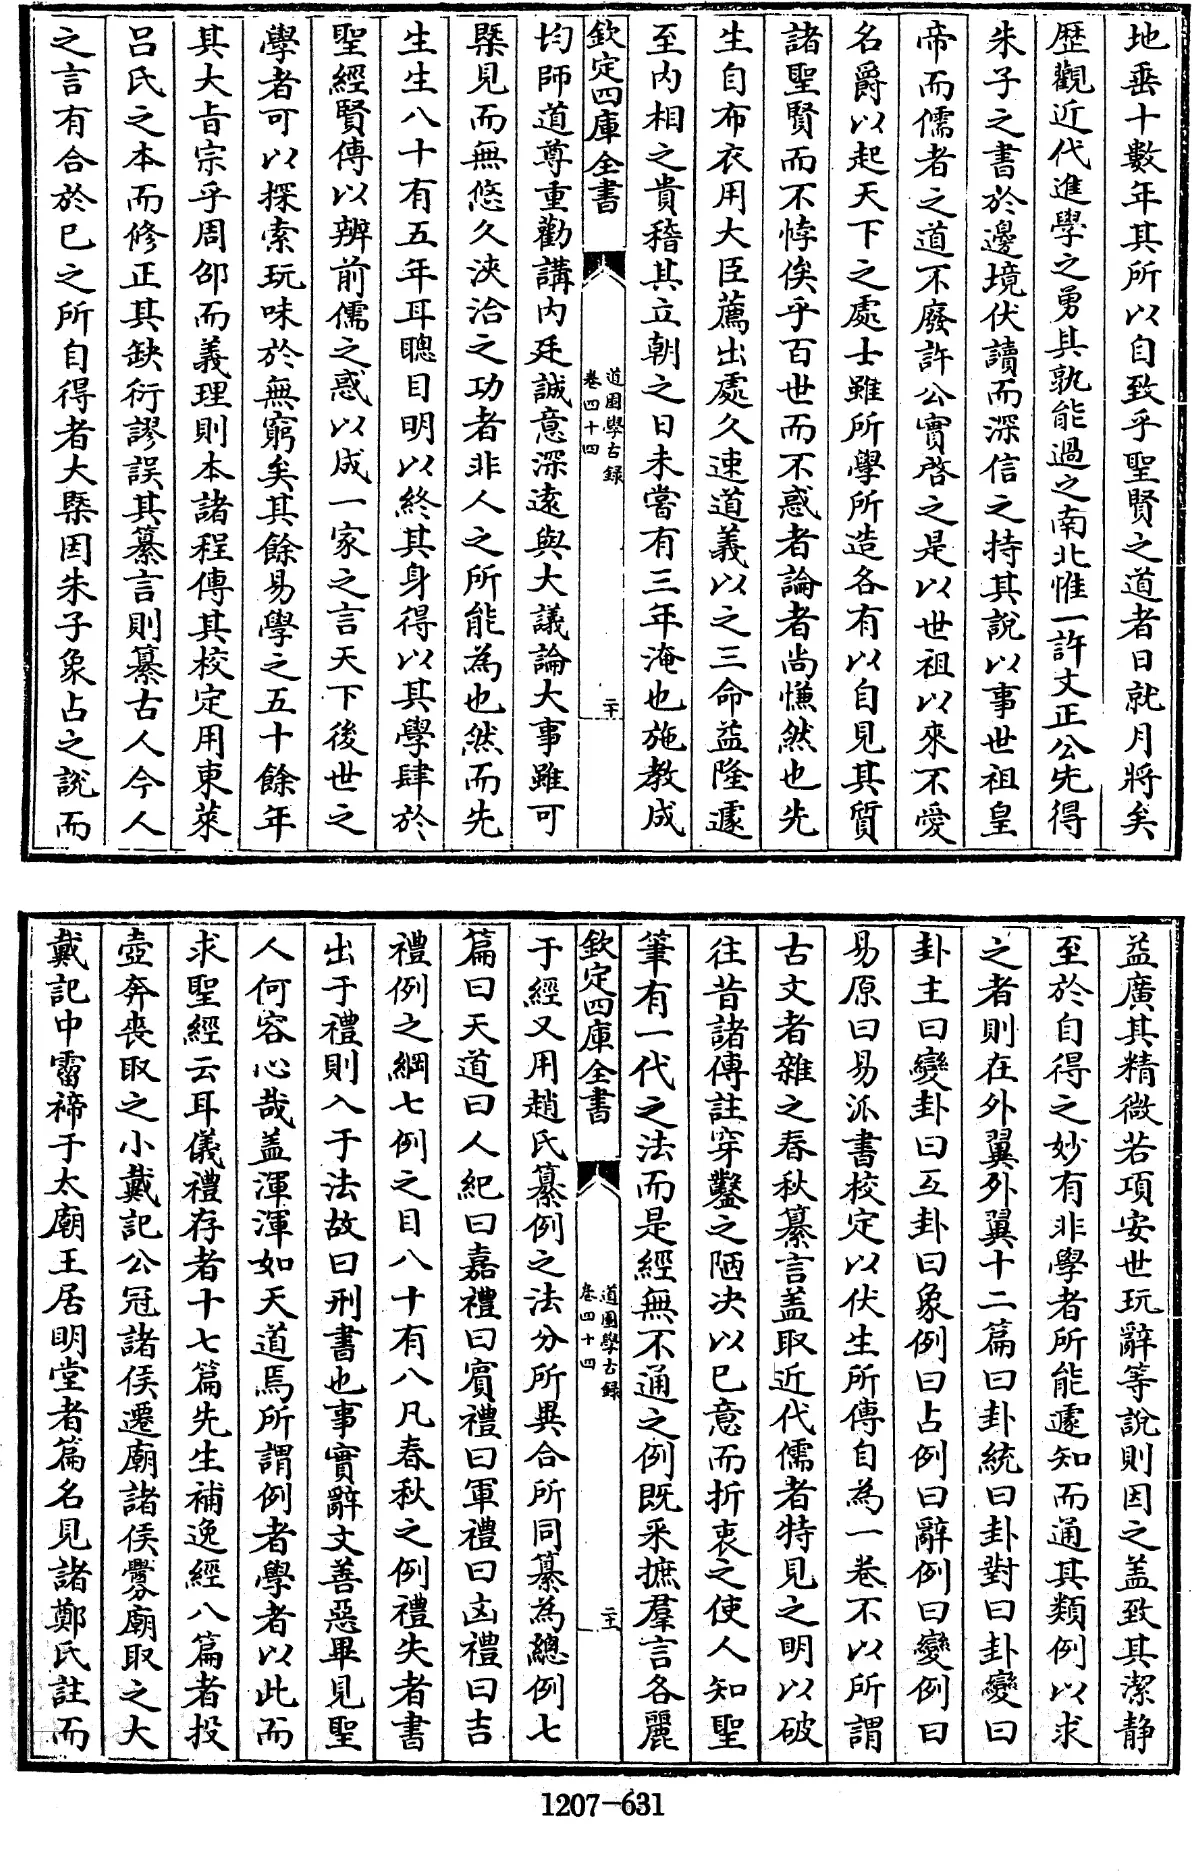 地垂十數年其所以自致乎聖賢之道者日就月將矣
歴觀近代進學之勇其孰能過之南北惟一許文正公先得
朱子之書於邊境伏讀而深信之持其說以事世祖皇
帝而儒者之道不廢許公實啓之是以世祖以來不愛
名爵以起天下之處士雖所學所造各有以自見其質
諸聖賢而不悖俟乎百世而不惑者論者尚慊然也先
生自布衣用大臣薦出處久速道義以之三命益隆遽
至内相之貴稽其立朝之日未嘗有三年淹也施教成
欽定四庫全書
道園學古録
卷四十四
二十
均師道尊重勸講内廷誠意深逺與大議論大事雖可
槩見而無悠久浹洽之功者非人之所能為也然而先
生生八十有五年耳聰目明以終其身得以其學肆於
聖經賢傳以辨前儒之惑以成一家之言天下後世之
學者可以探索玩味於無窮矣其餘易學之五十餘年
其大旨宗乎周邵而義理則本諸程傳其校定用東萊
吕氏之本而修正其缺衍謬誤其纂言則纂古人今人
之言有合於已之所自得者大槩因朱子象占之說而
益廣其精微若項安世玩辭等說則因之盖致其潔静
至於自得之妙有非學者所能遽知而通其類例以求
之者則在外翼外翼十二篇曰卦統曰卦對曰卦變曰
卦主曰變卦曰互卦曰象例曰占例曰辭例曰變例曰
易原曰易派書校定以伏生所傳自為一卷不以所謂
古文者雜之春秋纂言盖取近代儒者特見之明以破
往昔諸傳註穿鑿之陋决以已意而折衷之使人知聖
筆有一代之法而是經無不通之例既采摭羣言各麗
欽定四庫全書
道園學古録
卷四十四
二十一
于經又用趙氏纂例之法分所異合所同纂為總例七
篇曰天道曰人紀曰嘉禮曰賓禮曰軍禮曰凶禮曰吉
禮例之綱七例之目八十有八凡春秋之例禮失者書
出于禮則入于法故曰刑書也事實辭文善惡畢見聖
人何容心哉盖渾渾如天道焉所謂例者學者以此而
求聖經云耳儀禮存者十七篇先生補逸經八篇者投
壺奔喪取之小戴記公冠諸侯遷廟諸侯釁廟取之大
戴記中霤禘于太廟王居明堂者篇名見諸鄭氏註而
1207-631